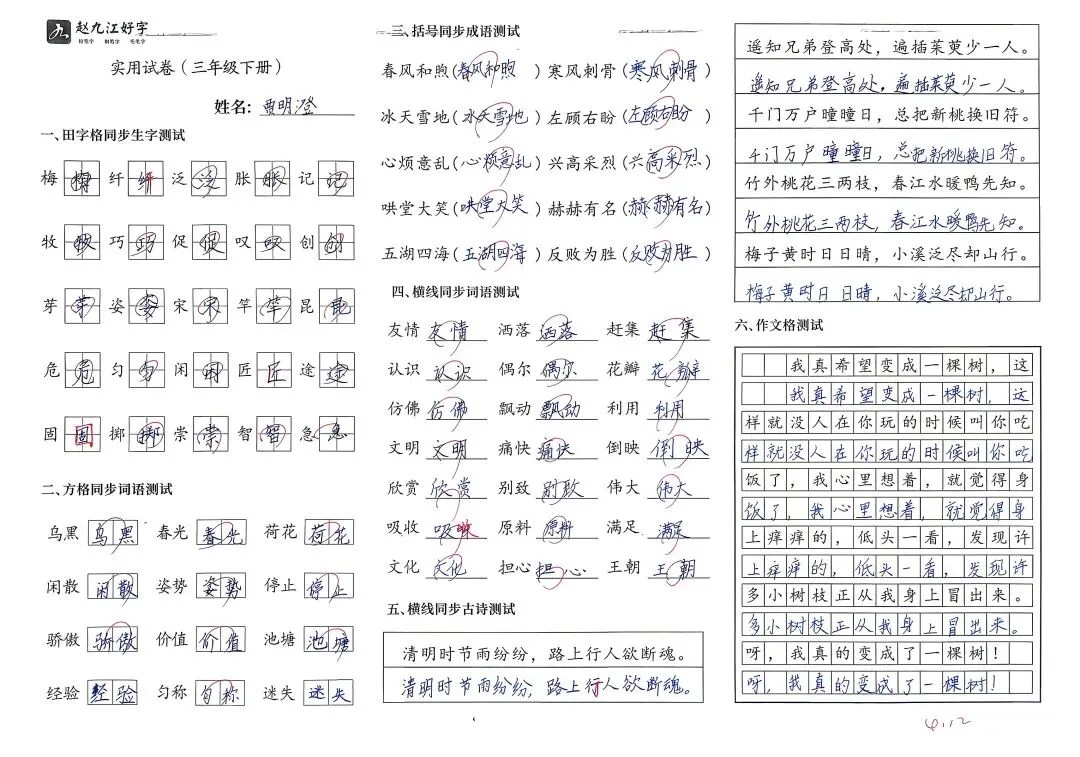 赵九江好字
铅笔字 钢笔字 毛笔字
实用试卷（三年级下册）
姓名：贾明澄
一、田字格同步生字测试
梅 梅 纤 纤 泛 泛 胀 胀 记 记
牧 牧 巧 巧 促 促 叹 叹 创 创
芽 芽 姿 姿 宋 宋 竿 竿 昆 昆
危 危 匀 匀 闲 闲 匠 匠 途 途
固 固 掷 掷 崇 崇 智 智 急 急
二、方格同步词语测试
乌黑 乌黑 春光 春光 荷花 荷花
闲散 闲散 姿势 姿势 停止 停止
骄傲 骄傲 价值 价值 池塘 池塘
经验 经验 匀称 匀称 迷失 迷失
三、括号同步成语测试
春风和煦(春风和煦) 寒风刺骨(寒风刺骨)
冰天雪地(冰天雪地) 左顾右盼(左顾右盼)
心烦意乱(心烦意乱) 兴高采烈(兴高采烈)
哄堂大笑(哄堂大笑) 赫赫有名(赫赫有名)
五湖四海(五湖四海) 反败为胜(反败为胜)
四、横线同步词语测试
友情 友情 洒落 洒落 赶集 赶集
认识 认识 偶尔 偶尔 花瓣 花瓣
仿佛 仿佛 飘动 飘动 利用 利用
文明 文明 痛快 痛快 倒映 倒映
欣赏 欣赏 别致 别致 伟大 伟大
吸收 吸收 原料 原料 满足 满足
文化 文化 担心 担心 王朝 王朝
五、横线同步古诗测试
清明时节雨纷纷，路上行人欲断魂。
清明时节雨纷纷，路上行人欲断魂。
遥知兄弟登高处，遍插茱萸少一人。
遥知兄弟登高处，遍插茱萸少一人。
千门万户曈曈日，总把新桃换旧符。
千门万户曈曈日，总把新桃换旧符。
竹外桃花三两枝，春江水暖鸭先知。
竹外桃花三两枝，春江水暖鸭先知。
梅子黄时日日晴，小溪泛尽却山行。
梅子黄时日日晴，小溪泛尽却山行。
六、作文格测试
我真希望变成一棵树，这
我真希望变成一棵树，这
样就没人在你玩的时候叫你吃
样就没人在你玩的时候叫你吃
饭了，我心里想着，就觉得身
饭了，我心里想着，就觉得身
上痒痒的，低头一看，发现许
上痒痒的，低头一看，发现许
多小树枝正从我身上冒出来。
多小树枝正从我身上冒出来。
呀，我真的变成了一棵树！
呀，我真的变成了一棵树！
4.12